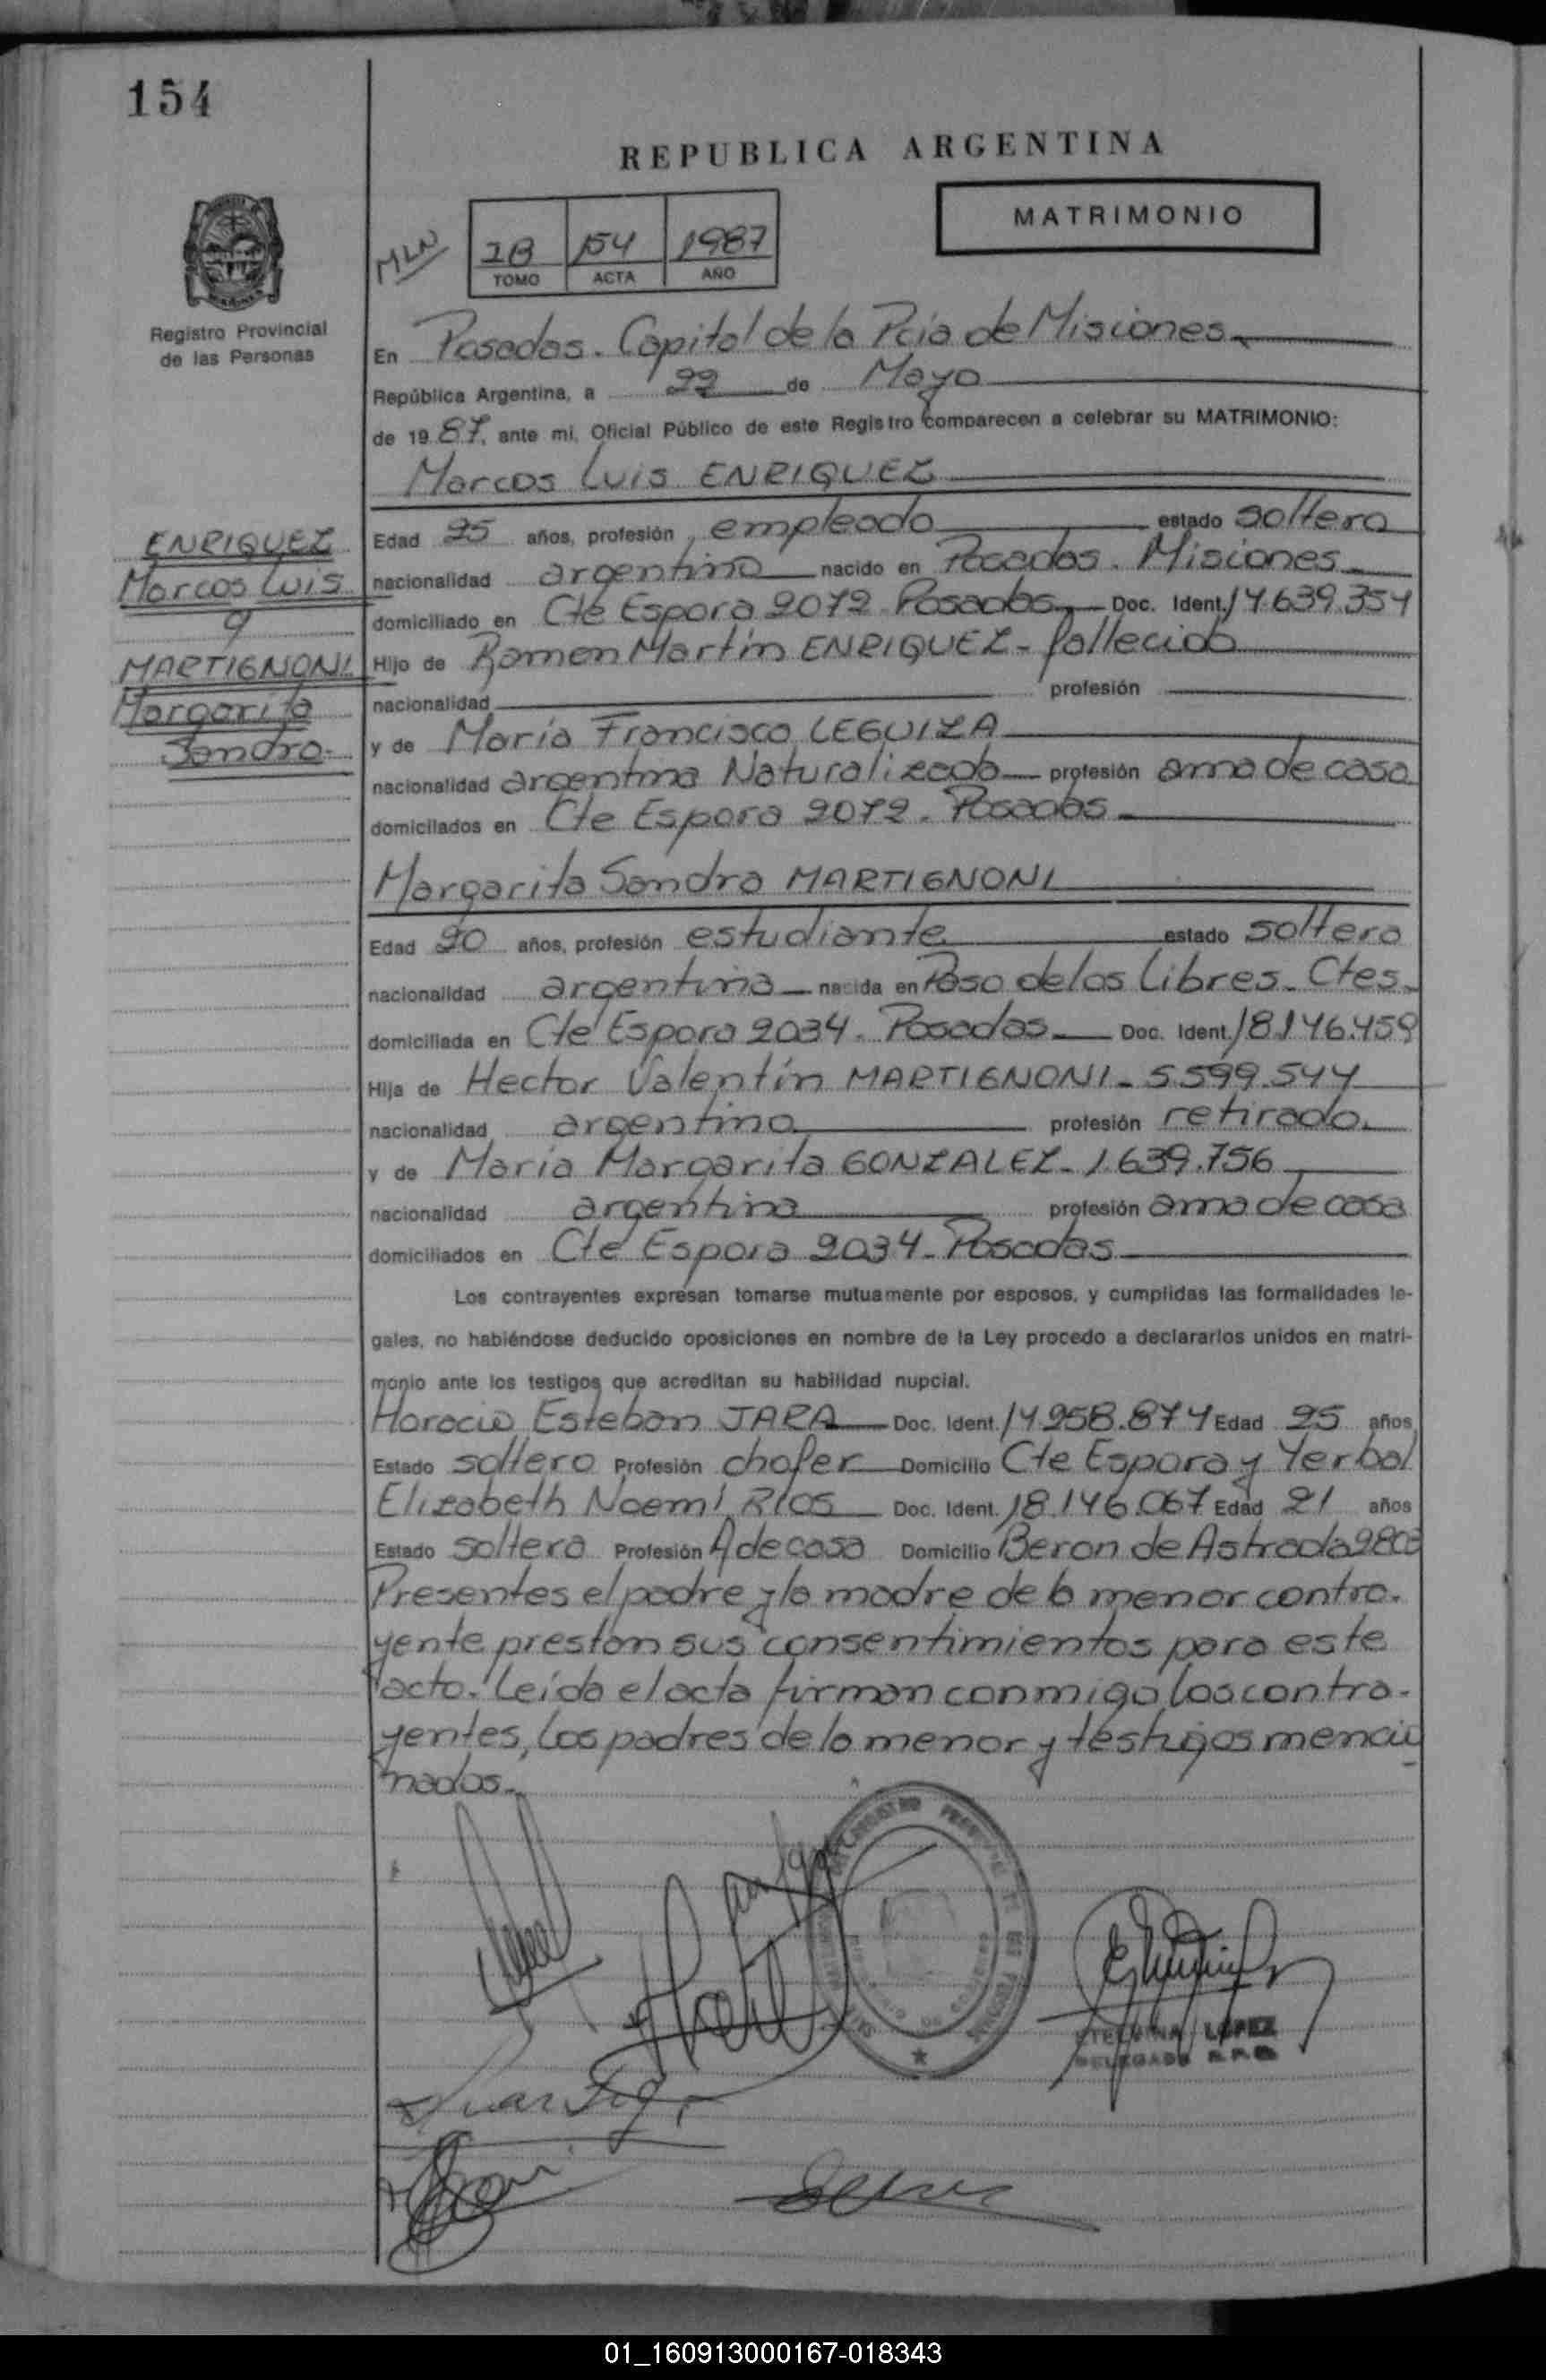 154
REPUBLICA ARGENTINA
MATRIMONIO
MLN
1B 154 1987
TOMO ACTA AÑO
Registro Provincial
de las Personas
En Posadas. Capital de la Pcia de Misiones
República Argentina, a 22 de Mayo
de 1987, ante mi, Oficial Público de este Registro comparecen a celebrar su MATRIMONIO:
Marcos Luis ENRIQUEZ
ENRIQUEZ
Marcos Luis
y
MARTIGNONI
Margarita
Sandra.
Edad 25 años, profesión empleado estado soltero
nacionalidad argentino nacido en Posadas. Misiones
domiciliado en Cte Espora 2072 Posadas Doc. Ident. 14.639.354
Hijo de Ramon Martín ENRIQUEZ - fallecido
nacionalidad profesión
y de María Francisca LEGUIZA
nacionalidad argentina Naturalizada profesión ama de casa
domiciliados en Cte Espora 2072. Posadas
Margarita Sandra MARTIGNONI
Edad 20 años, profesión estudiante estado soltera
nacionalidad argentina nacida en Paso de los Libres. Ctes.
domiciliada en Cte Espora 2034. Posadas Doc. Ident. 18.146.459
Hija de Hector Valentín MARTIGNONI - 5.599.544
nacionalidad argentino profesión retirado.
y de María Margarita GONZALEZ - 1.639.756
nacionalidad argentina profesión ama de casa
domiciliados en Cte Espora 2034 - Posadas
Los contrayentes expresan tomarse mutuamente por esposos, y cumplidas las formalidades le-
gales, no habiéndose deducido oposiciones en nombre de la Ley procedo a declararlos unidos en matri-
monio ante los testigos que acreditan su habilidad nupcial.
Horacio Esteban JARA Doc. Ident. 14.958.874 Edad 25 años
Estado soltero Profesión chofer Domicilio Cte Espora y Yerbal
Elizabeth Noemí RIOS Doc. Ident. 18.146.067 Edad 21 años
Estado soltera Profesión A de casa Domicilio Beron de Astrada 2803
Presentes el padre y la madre de la menor contra-
yente prestan sus consentimientos para este
acto. Leída el acta firman conmigo los contra-
yentes, los padres de la menor y testigos mencio
nados.
LOPEZ
01_160913000167-018343